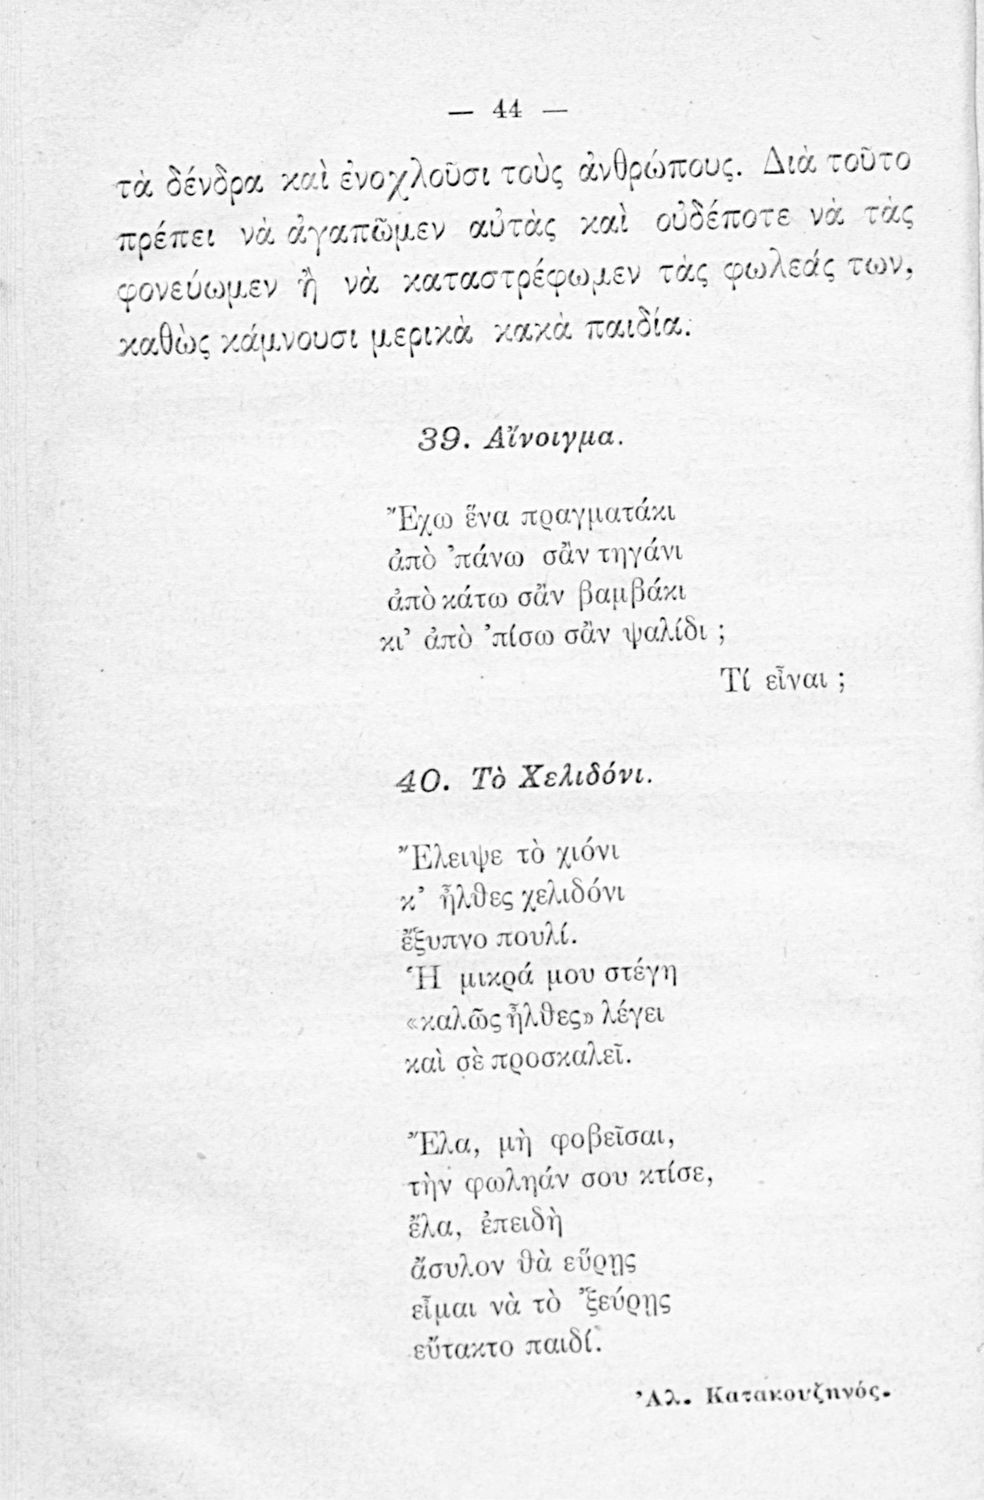 — 44 —
τὰ δένδρα καὶ ἐνοχλοῦσι τοὺς ἀνθρώπους. Διὰ τοῦτο
πρέπει νὰ ἀγαπῶμεν αὐτὰς καὶ οὐδέποτε νὰ τὰς
φονεύωμεν ἢ νὰ καταστρέφωμεν τὰς φωλεάς των,
καθὼς κάμνουσι μερικὰ κακὰ παιδία.
39. Αἴνοιγμα.
Ἔχω ἕνα πραγματάκι
ἀπὸ ’πάνω σἂν τηγάνι
ἀπὸ κάτω σἂν βαμβάκι
κι’ ἀπὸ ’πίσω σἂν ψαλίδι ;
Τί εἶναι ;
40. Τὸ Χελιδόνι.
Ἔλειψε τὸ χιόνι
κ’ ἦλθες χελιδόνι
ἔξυπνο πουλί.
Ἡ μικρά μου στέγη
«καλῶς ἦλθες» λέγει
καὶ σὲ προσκαλεῖ.
Ἔλα, μὴ φοβεῖσαι,
τὴν φωληάν σου κτίσε,
ἔλα, ἐπειδὴ
ἄσυλον θὰ εὕρῃς
εἶμαι νὰ τὸ ’ξεύρῃς
εὔτακτο παιδί.
Ἀλ. Κατακουζηνός.